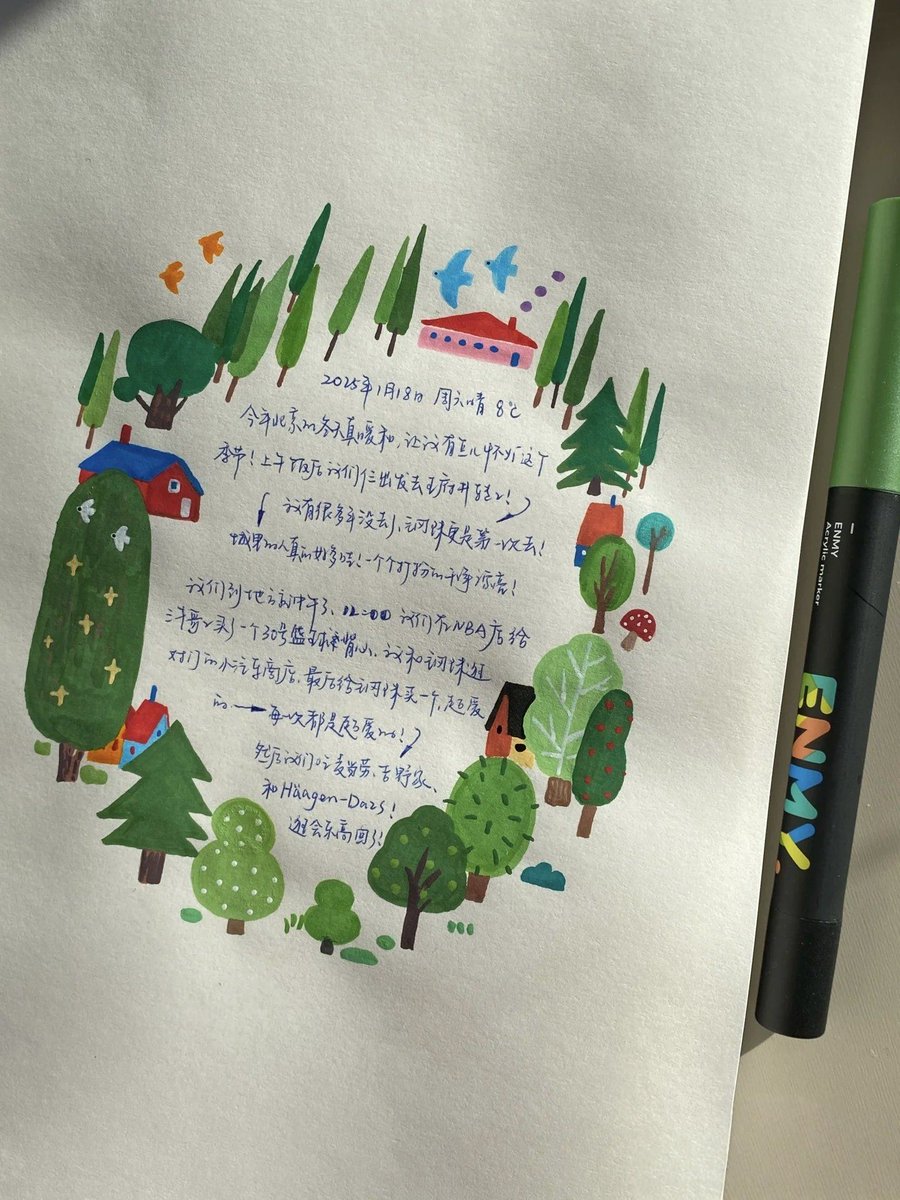 2025年1月18日 周六晴 8℃
今年北京的冬天真暖和,让我有点儿怀疑这个
季节!上午饭后我们仨出发去王府井转转!
我有很多年没去了,珠更是第一次去!
城里的人真的好多哇!一个个打扮的干净漂亮!
我们到地方刚中午了、12:00 我们在NBA店给
买了一个30号篮球背心、我和珠逛
对门的小汽车商店,最后给珠买一个,超爱
的 每次都是超爱的!
然后我们吃麦当劳、吉野家、
和Häagen-Dazs!
逛会乐高回了!
ENMY
Acrylic marker
ENMY